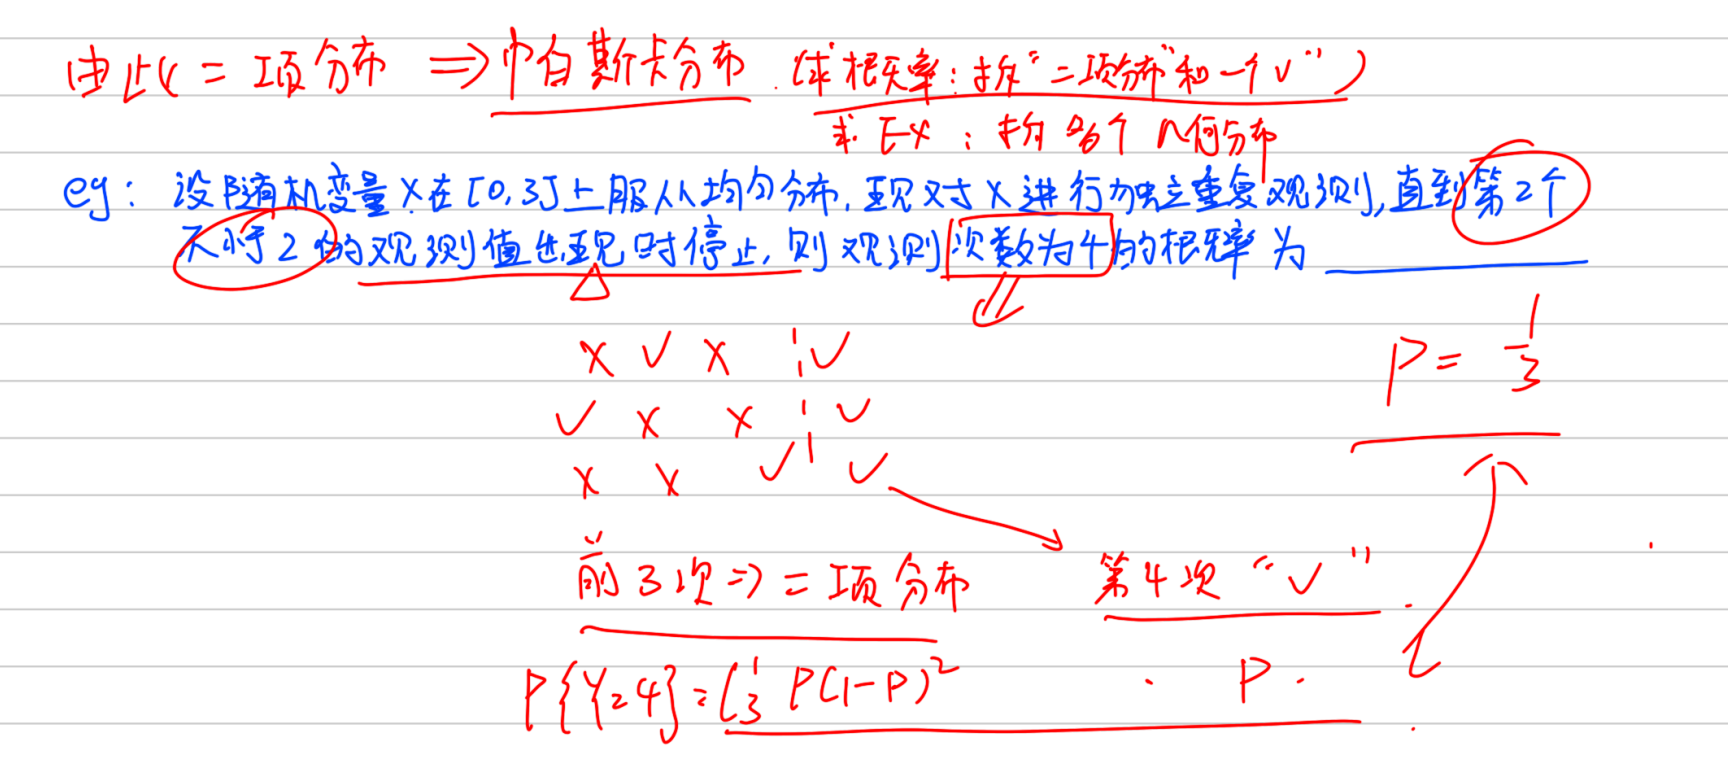 由此 二项分布 ⇒ 巾白斯卡分布.(求概率:拆“二项分布”和一个√”)
求 EX : 拆多个几何分布
eg: 设随机变量X在[0,3]上服从均匀分布,现对X进行独立重复观测,直到第2个
不小于2的观测值出现时停止,则观测次数为4的概率为
× √ × ¦ √
√ × × ¦ √
× × √ ¦ √
P = 1/3
前3次⇒二项分布 第4次“√”
P{Y=4}=C₃¹ P(1-P)² · P.